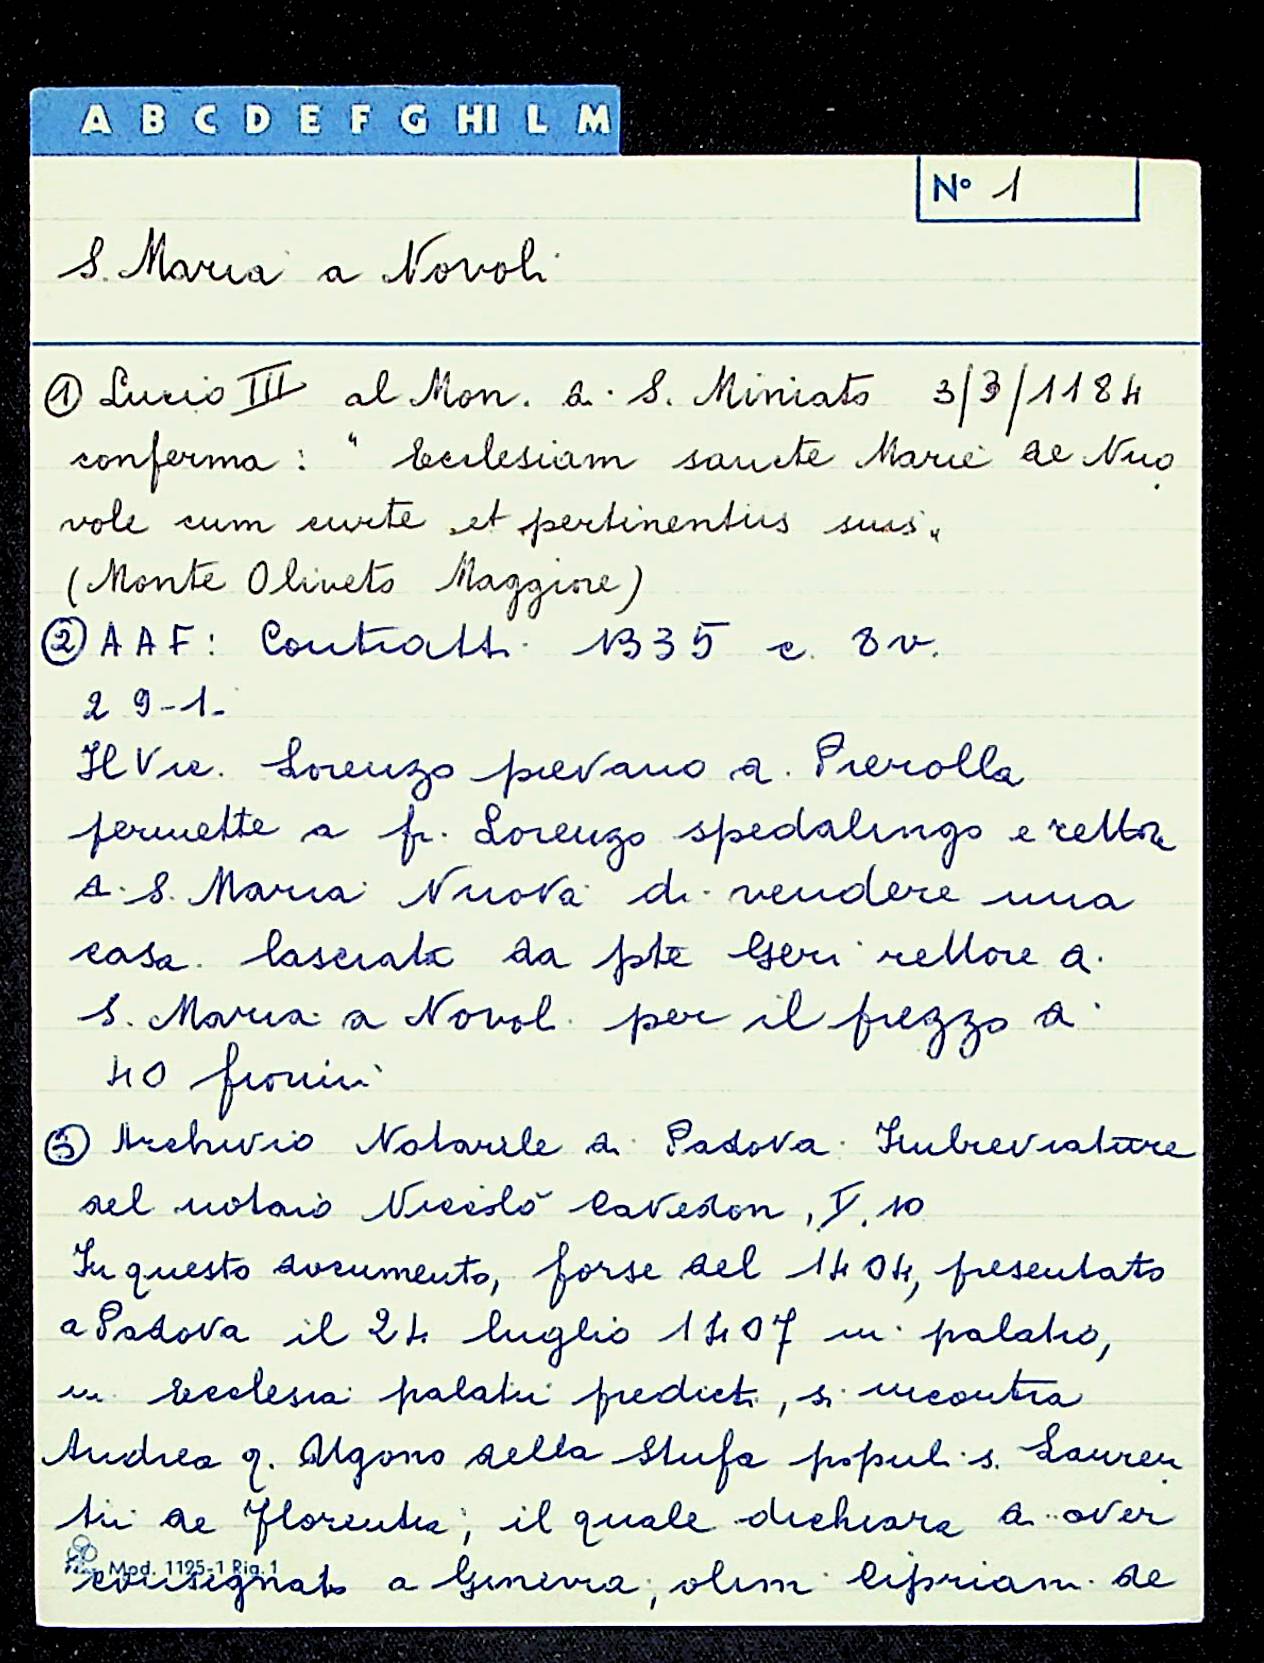 A B C D E F G HI L M
N° 1
S. Maria a Novoli
① Lucio III al Mon. di S. Miniato 3/3/1184
conferma: " Ecclesiam sancte Marie de Nuo
vole cum curte et pertinentiis suis "
(Monte Oliveto Maggiore)
② AAF: Contratti 1335 c. 8v.
29-1-
Il Vic. Lorenzo pievano di Pierolla
permette a fr. Lorenzo spedalingo e rettore
di S. Maria Nuova di vendere una
casa lasciata da pte Geri rettore di
S. Maria a Novoli per il prezzo di
40 fiorini
③ Archivio Notarile di Padova. Imbreviature
del notaio Niccolò Cavedon, V, 10
In questo documento, forse del 1404, presentato
a Padova il 24 luglio 1407 in palatio,
in Ecclesia palatii predicti, si incontra
Andrea q. Ugono della Stufa populi s. Lauren
tii de Florentia; il quale dichiara di aver
Mod. 1125-1 Rig. 1
consegnato a Ginevra, olim Cipriani de